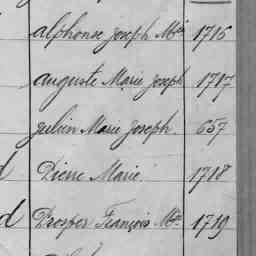 alphonse Joseph Mie 1715
auguste Marie Joseph 1717
Julien Marie Joseph 657
d Pierre Marie 1718
d Prosper François Mie 1719